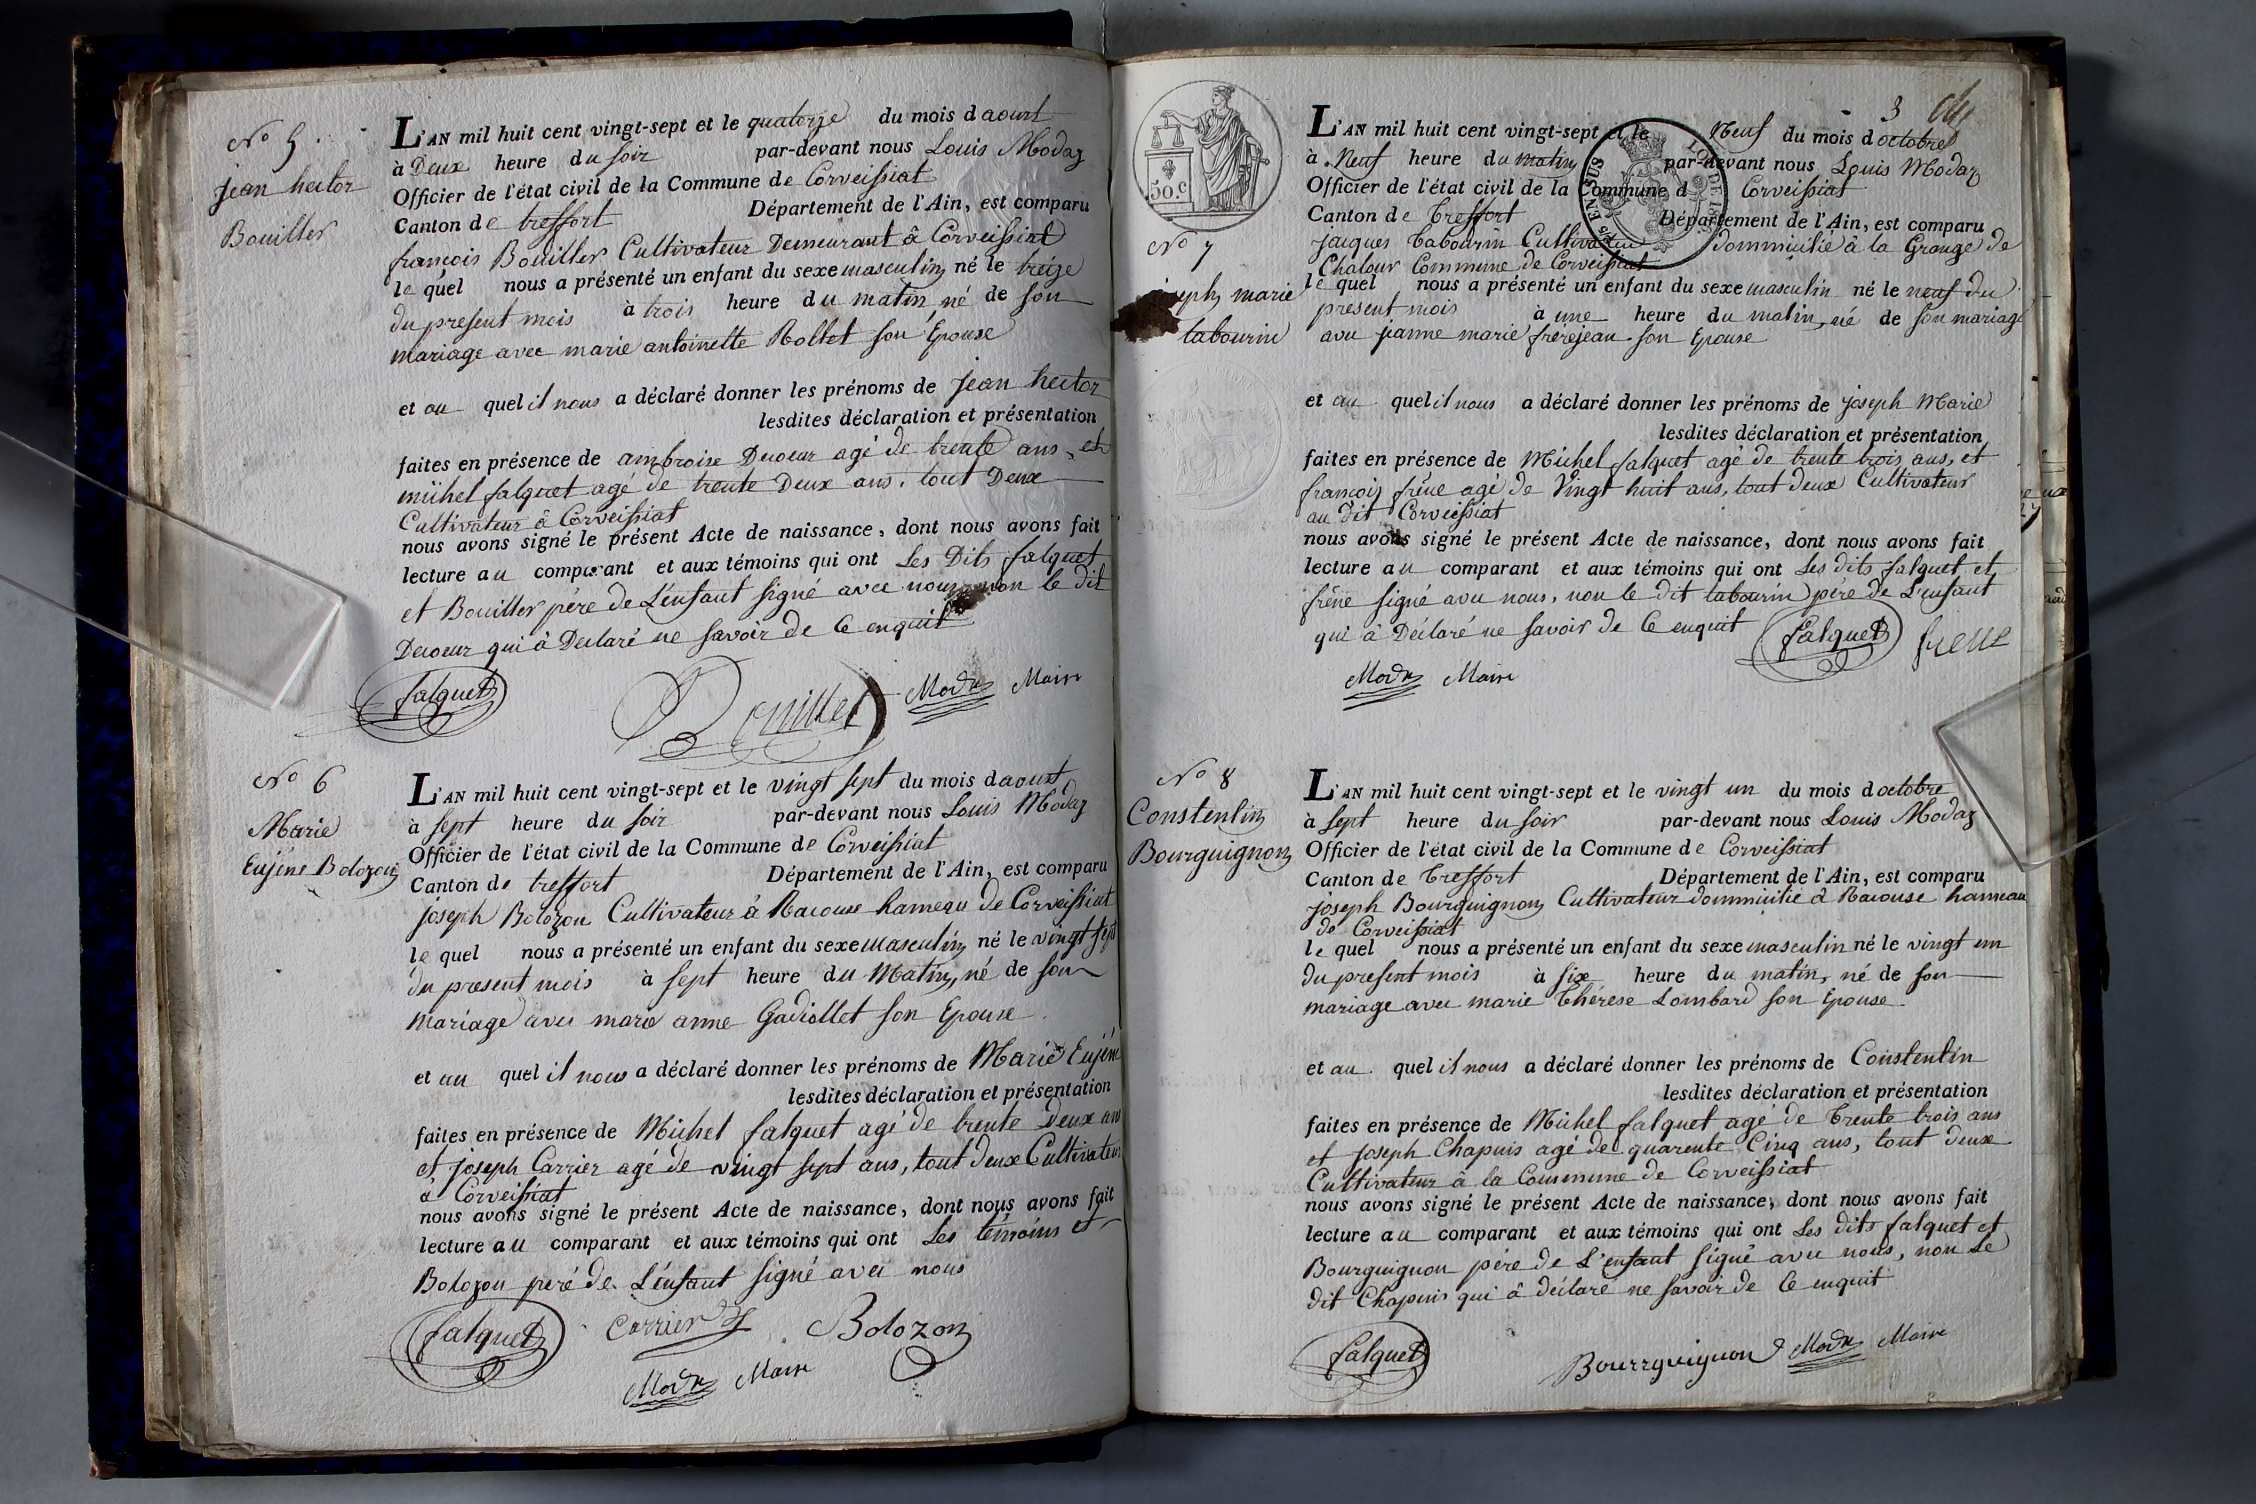 N° 5.
jean hector
Bouiller
L'AN mil huit cent vingt-sept et le quatorze du mois d aoust
à Deux heure du soir par-devant nous Louis Modaz
Officier de l'état civil de la Commune de Corveissiat
Canton de treffort Département de l'Ain, est comparu
françois Bouiller Cultivateur Demeurant â Corveissiat
le quel nous a présenté un enfant du sexe masculin né le treize
du present mois à trois heure du matin né de son
mariage avec marie antoinette Rollet son Epouse
et au quel il nous a déclaré donner les prénoms de jean hector
lesdites déclaration et présentation
faites en présence de ambroise Decoeur agé de trente ans, et
michel falquet agé de trente Deux ans. tout Deux
Cultivateur â Corveissiat
nous avons signé le présent Acte de naissance, dont nous avons fait
lecture au comparant et aux témoins qui ont Les Dits falquet
et Bouiller pére de L'enfant signé avec nous non le dit
Decoeur qui â Declaré ne savoir de Ce enquit
falquet Bouiller Modaz Maire
N° 6
Marie
Eujéne Bolozon
L'AN mil huit cent vingt-sept et le vingt sept du mois d aoust
à sept heure du soir par-devant nous Louis Modaz
Officier de l'état civil de la Commune de Corveissiat
Canton de treffort Département de l'Ain, est comparu
joseph Bolozon Cultivateur â Racouse hameau de Corveissiat
le quel nous a présenté un enfant du sexe masculin né le vingt sept
du present mois à sept heure du Matin, né de son
mariage avec marie anne Gadiollet son Epouse.
et au quel il nous a déclaré donner les prénoms de Marie Eujéne
lesdites déclaration et présentation
faites en présence de Michel falquet agé de trente Deux ans
et joseph Carrier agé de vingt sept ans, tout deux Cultivateur
â Corveissiat
nous avons signé le présent Acte de naissance, dont nous avons fait
lecture au comparant et aux témoins qui ont Les témoins et
Bolozon peré de L'enfant signé avec nous
falquet Carrier Bolozon
Modaz Maire
3
50 c.
EN SUS
LOI DE
N° 7
joseph marie
tabourin
L'AN mil huit cent vingt-sept et le Neuf du mois d octobre
à Neuf heure du matin par-devant nous Louis Modaz
Officier de l'état civil de la Commune d Corveissiat
Canton de Treffort Département de l'Ain, est comparu
jacques Tabourin Cultivateur dommicilié à la Grange de
Chalour Commune de Corveissiat
le quel nous a présenté un enfant du sexe masculin né le neuf du
present mois à une heure du matin, né de son mariage
avec jeanne marie frérejean son Epouse
et au quel il nous a déclaré donner les prénoms de joseph Marie
lesdites déclaration et présentation
faites en présence de Michel falquet agé de trente trois ans, et
françois frêne agé de Vingt huit ans, tout deux Cultivateur
au dit Corveissiat
nous avons signé le présent Acte de naissance, dont nous avons fait
lecture au comparant et aux témoins qui ont Les dits falquet et
frêne signé avec nous, non le dit tabourin pére de L'enfant
qui â Déclaré ne savoir de Ce enquit falquet frene
Modaz Maire
N° 8
Constentin
Bourguignon
L'AN mil huit cent vingt-sept et le vingt un du mois d octobre
à sept heure du soir par-devant nous Louis Modaz
Officier de l'état civil de la Commune de Corveissiat
Canton de Treffort Département de l'Ain, est comparu
joseph Bourguignon Cultivateur dommicilié à Racouse hameau
de Corveissiat
le quel nous a présenté un enfant du sexe masculin né le vingt un
du present mois à six heure du matin, né de son
mariage avec marie Thérese Lombard son Epouse.
et au quel il nous a déclaré donner les prénoms de Constentin
lesdites déclaration et présentation
faites en présence de Michel falquet agé de Trente trois ans
et joseph Chapuis agé de quarente Cinq ans, tout deux
Cultivateur à la Commune de Corveissiat
nous avons signé le présent Acte de naissance, dont nous avons fait
lecture au comparant et aux témoins qui ont Les dits falquet et
Bourguignon pére de L'enfant signé avec nous, non Le
dit Chapuis qui â déclaré ne savoir de Ce enquit
falquet Bourrguignon Modaz Maire